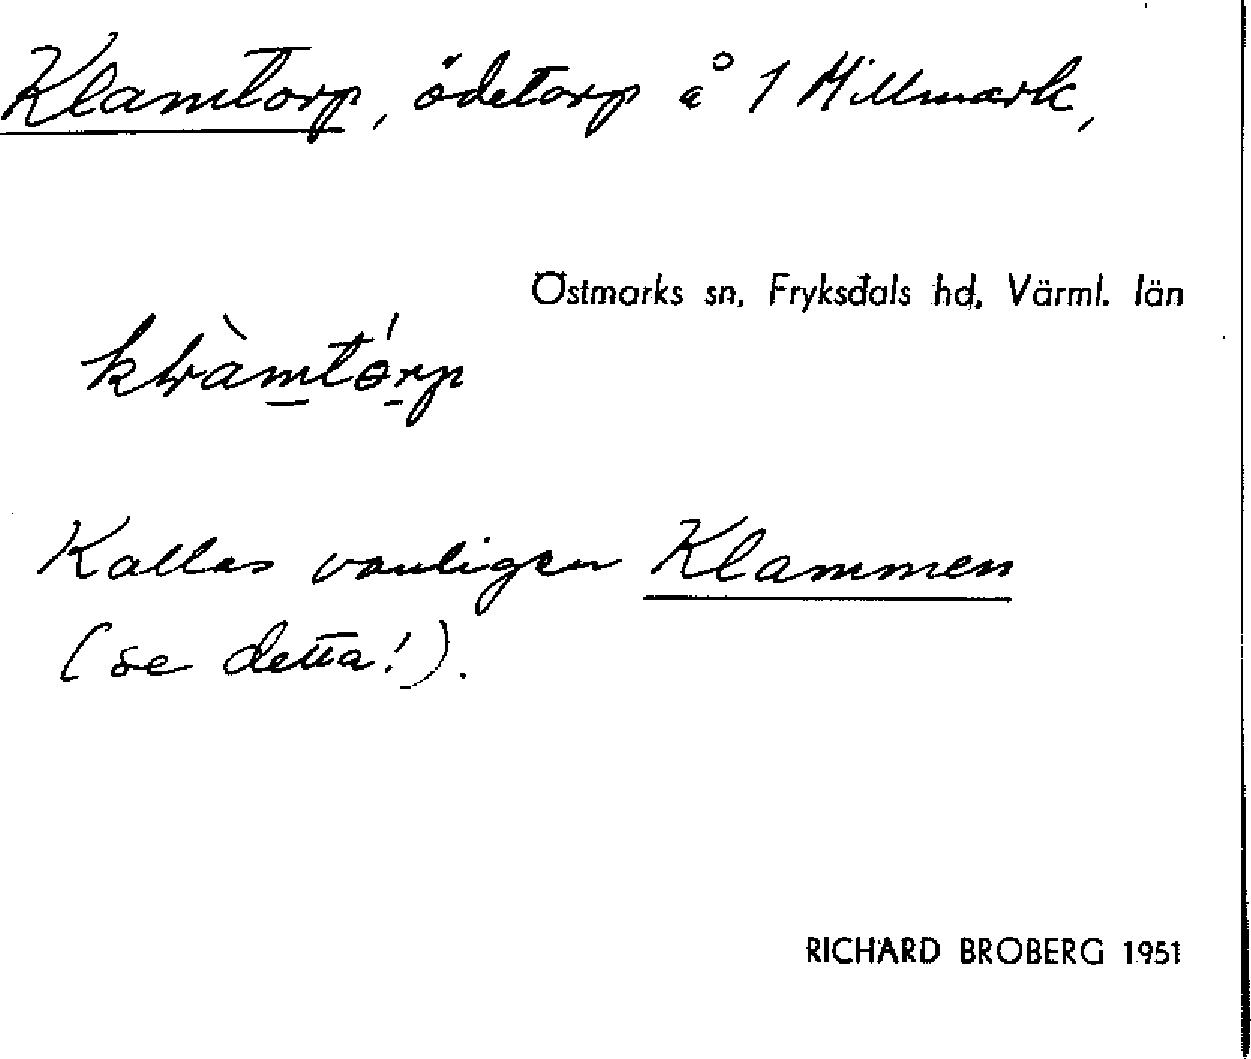 Klamtorp, ödetorp å 1 Millmark,
Östmarks sn, Fryksdals hd, Värml. län
Kallas vanligen Klammen
(se detta!).
RICHARD BROBERG 1951